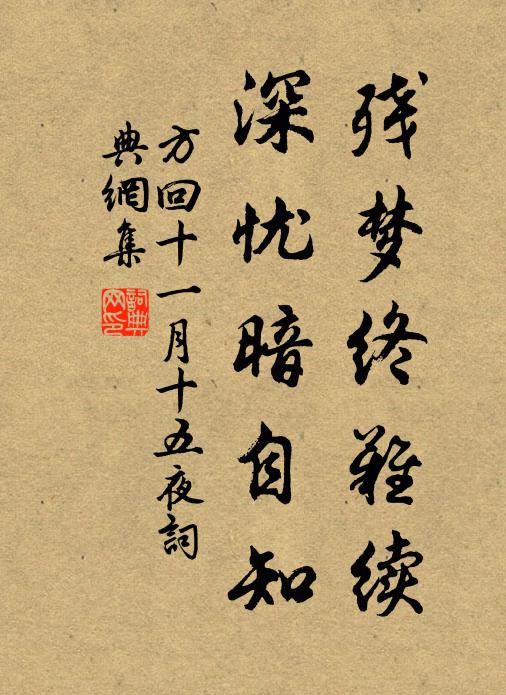 残梦终难续
深忧暗自知
方回十一月十五夜詞
典網集
詞典網印